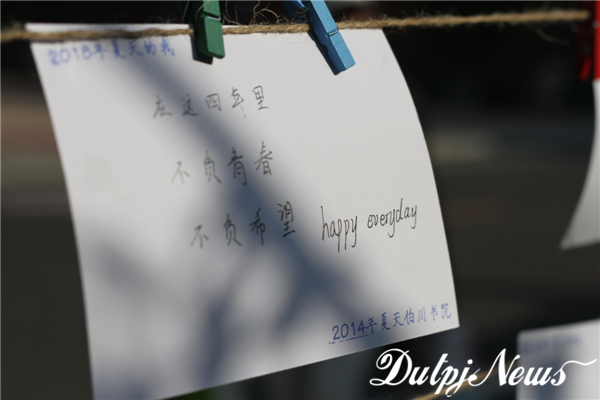 2018年夏天的我
在这四年里
不负青春
不负希望 happy everyday
2014年夏天伯川书院
DutpjNews